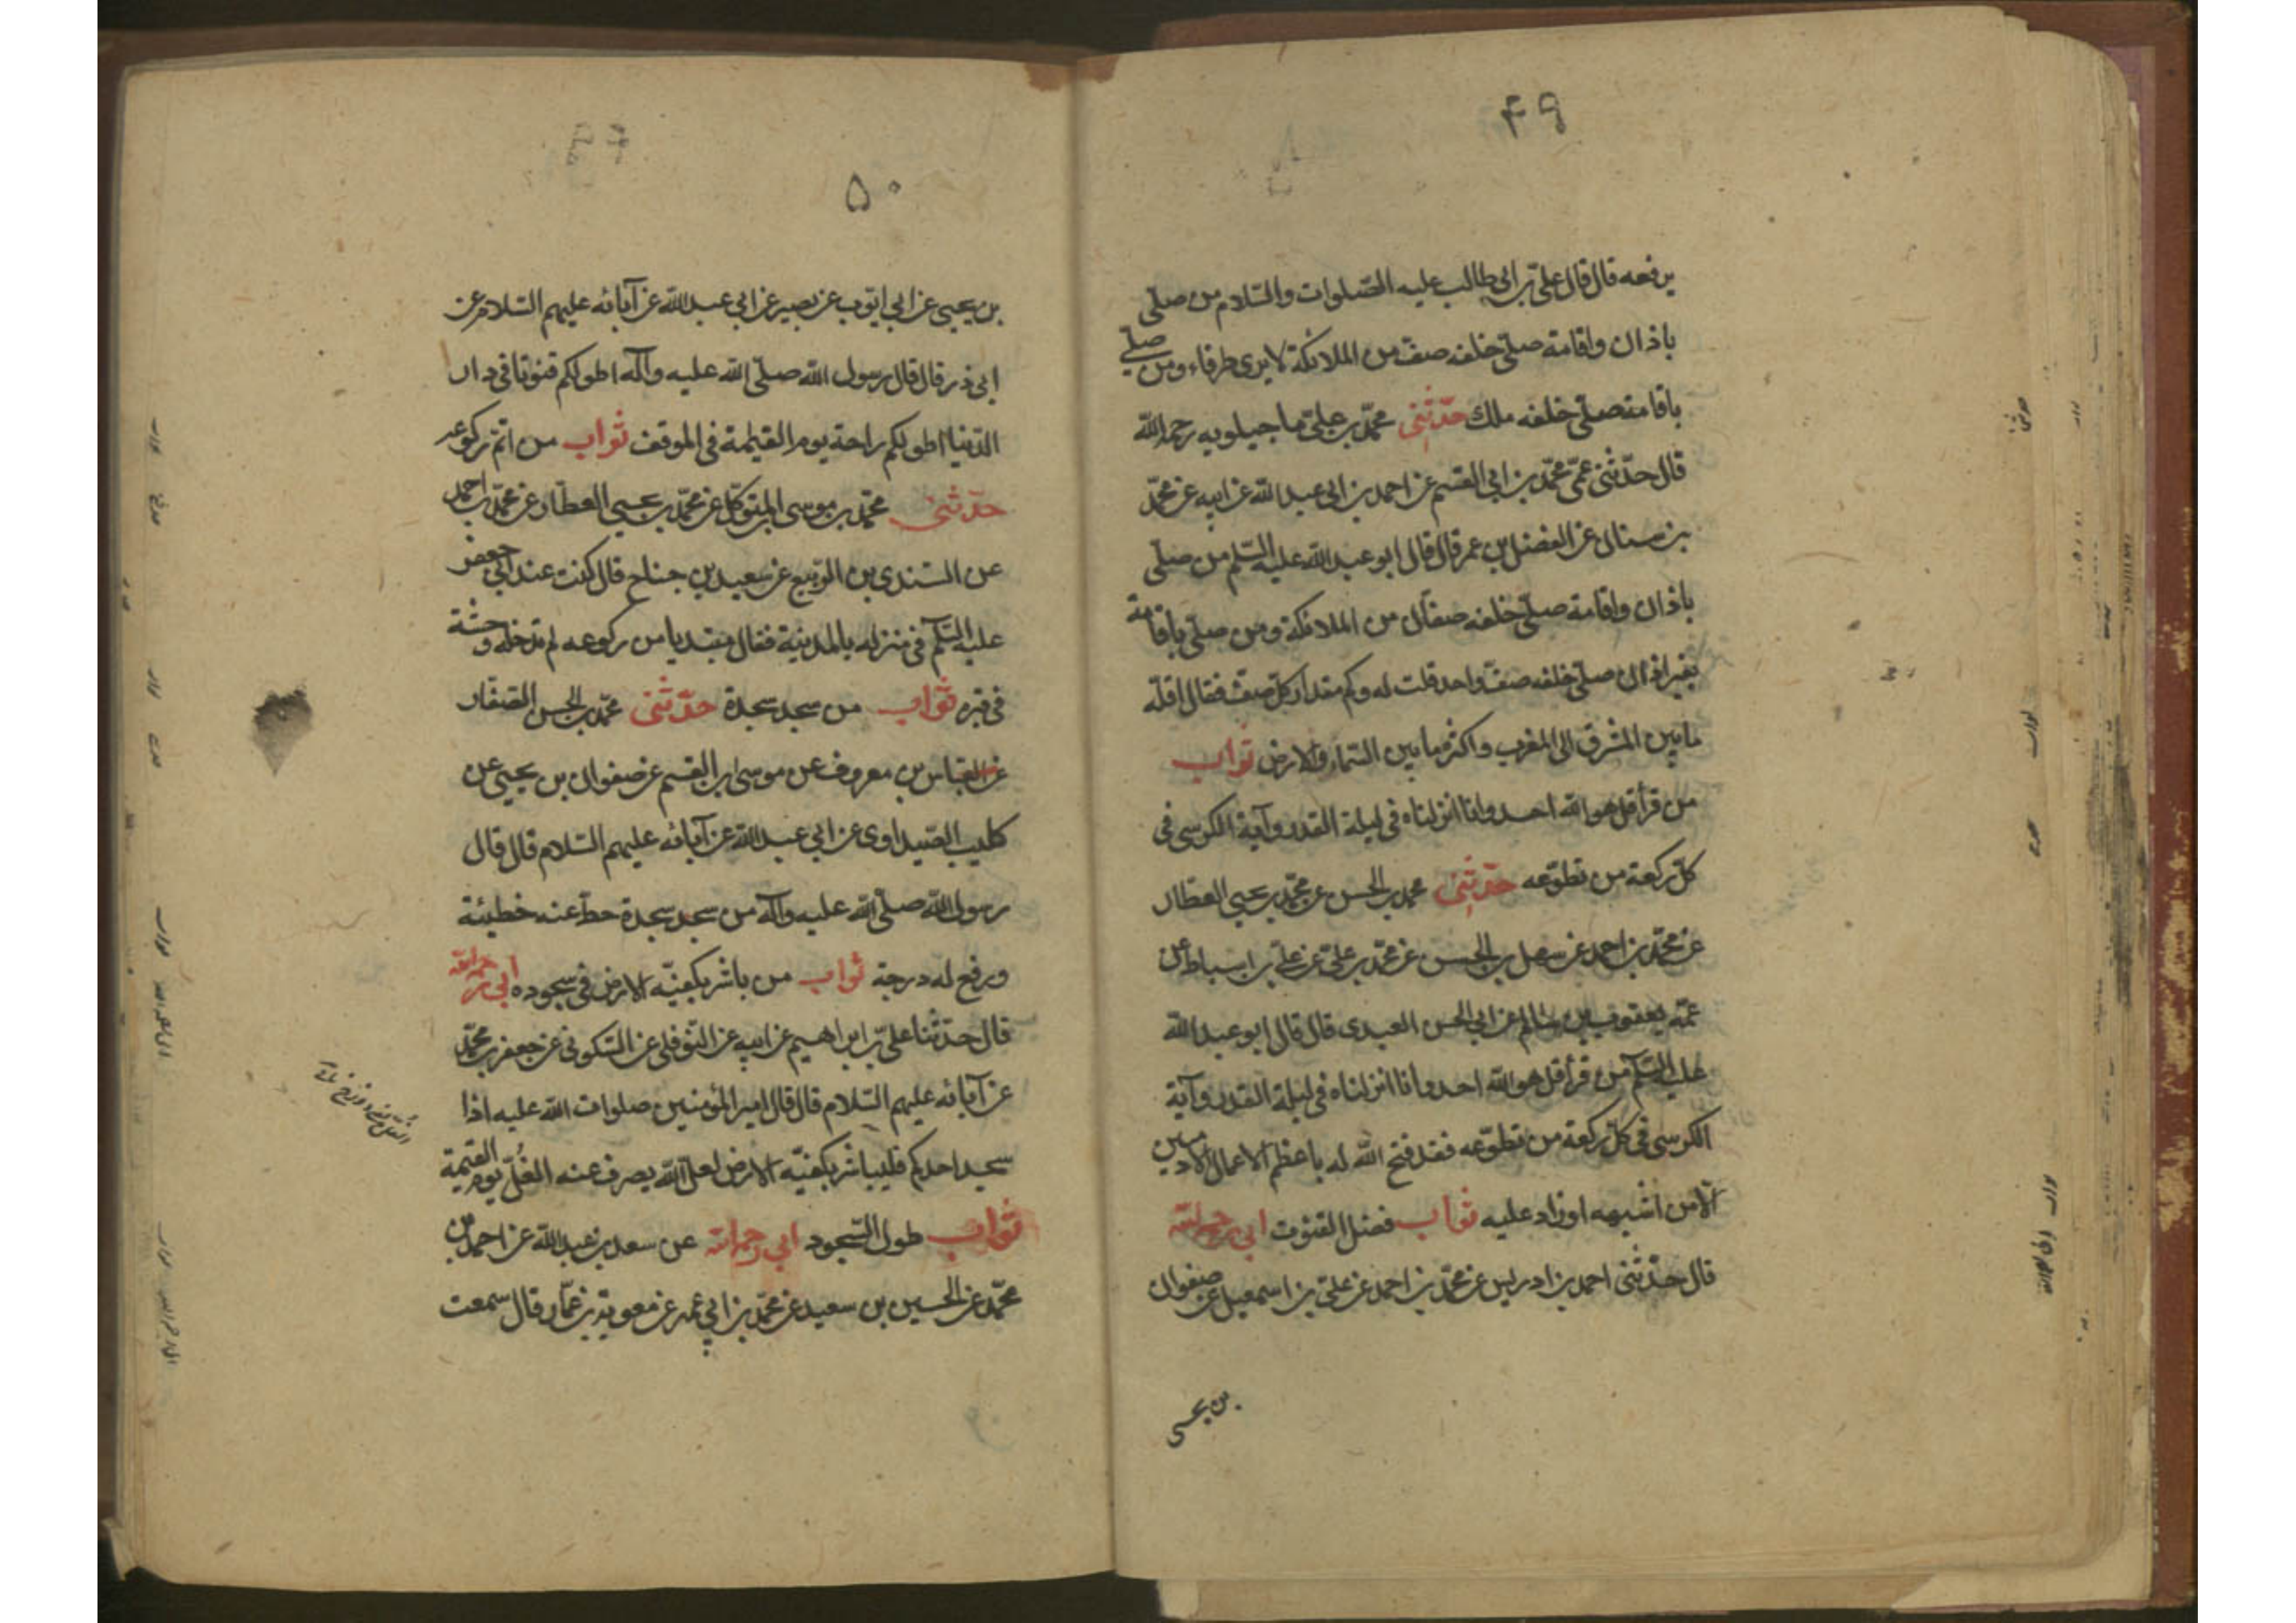 ۴۹
يرفعه قال قال على بن ابى طالب عليه الصّلوات والسّلام من صلّى
باذان واقامة صلّى خلفه صف من الملائكة لا يرى طرفاه ومن صلى
باقامة صلّى خلفه ملك حدّثنى محمّد بن على ماجيلويه رحمه الله
قال حدّثنى عمّى محمّد بن ابى القسم عن احمد بن ابى عبد الله عن ابيه عن محمّد
بن سنان عن المفضل بن عمر قال قال ابو عبد الله عليه السّلم من صلّى
باذان واقامة صلّى خلفه صفّان من الملائكة ومن صلّى باقامة
بغير اذان صلّى خلفه صف واحد قلت له وكم مقدار كلّ صف فقال اقلّه
ما بين المشرق الى المغرب واكثره ما بين السّماء والارض ثواب
من قرأ قل هو الله احد وانا انزلناه فى ليلة القدر وآية الكرسى فى
كلّ ركعة من تطوّعه حدّثنى محمد بن الحسن عن محمّد بن يحيى العطار
عن محمّد بن احمد عن سهل بن الحسن عن محمّد بن على عن على بن اسباط عن
عمّه يعقوب بن سالم عن ابى الحسن العبدى قال قال ابو عبد الله
عليه السّلم من قرأ قل هو الله احد وانا انزلناه فى ليلة القدر وآية
الكرسى فى كلّ ركعة من تطوّعه فقد فتح الله له باعظم الاعمال الادميين
الّا من اشبهه او زاد عليه ثواب فضل القنوت ابى رحمه الله
قال حدّثنى احمد بن ادريس عن محمّد بن احمد عن على بن اسمعيل عن صفوان
بن يحيى
۵۰
بن يحيى عن ابى ايّوب عن بصير عن ابى عبد الله عن آبائه عليهم السّلام عن
ابى ذر قال قال رسول الله صلّى الله عليه وآله اطولكم قنوتا فى دار
الدّنيا اطولكم راحة يوم القيمة فى الموقف ثواب من اتم ركوعه
حدّثنى محمّد بن موسى المتوكّل عن محمّد بن يحيى العطّار عن محمّد بن احمد
عن السّندى بن الرّبيع عن سعيد بن جناح قال كنت عند ابى جعفر
عليه السّلم فى منزله بالمدينة فقال مبتديا من ركوعه لم تدخله وحشة
فى قبره ثواب من سجد سجدة حدّثنى محمّد بن الحسن الصفار
عن العباس بن معروف عن موسى بن القسم عن صفوان بن يحيى عن
كليب الصّيداوى عن ابى عبد الله عن آبائه عليهم السّلام قال قال
رسول الله صلّى الله عليه وآله من سجد سجدة حط عنه خطيئة
ورفع له درجة ثواب من باشر بكفّيه الارض فى سجوده ابى رحمه الله
قال حدّثنا على بن ابراهيم عن ابيه عن النّوفلى عن السّكونى عن جعفر بن محمّد
عن آبائه عليهم السّلام قال قال امير المؤمنين صلوات الله عليه اذا
سجد احدكم فليباشر بكفّيه الارض لعلّ الله يصرف عنه الغُلّ يوم القيمة
ثواب طول السّجود ابى رحمه الله عن سعد بن عبد الله عن احمد بن
محمّد عن الحسين بن سعيد عن محمّد بن ابى عمير عن معوية بن عمّار قال سمعت